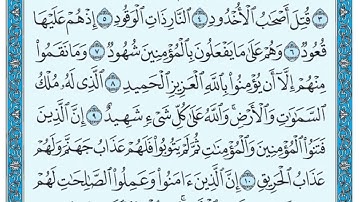 ٣ قُتِلَ أَصْحَٰبُ ٱلْأُخْدُودِ ٤ ٱلنَّارِ ذَاتِ ٱلْوَقُودِ ٥ إِذْ هُمْ عَلَيْهَا
قُعُودٌ ٦ وَهُمْ عَلَىٰ مَا يَفْعَلُونَ بِٱلْمُؤْمِنِينَ شُهُودٌ ٧ وَمَا نَقَمُوا۟
مِنْهُمْ إِلَّآ أَن يُؤْمِنُوا۟ بِٱللَّهِ ٱلْعَزِيزِ ٱلْحَمِيدِ ٨ ٱلَّذِى لَهُۥ مُلْكُ
ٱلسَّمَٰوَٰتِ وَٱلْأَرْضِ ۚ وَٱللَّهُ عَلَىٰ كُلِّ شَىْءٍ شَهِيدٌ ٩ إِنَّ ٱلَّذِينَ
فَتَنُوا۟ ٱلْمُؤْمِنِينَ وَٱلْمُؤْمِنَٰتِ ثُمَّ لَمْ يَتُوبُوا۟ فَلَهُمْ عَذَابُ جَهَنَّمَ وَلَهُمْ
عَذَابُ ٱلْحَرِيقِ ١٠ إِنَّ ٱلَّذِينَ ءَامَنُوا۟ وَعَمِلُوا۟ ٱلصَّٰلِحَٰتِ لَهُمْ